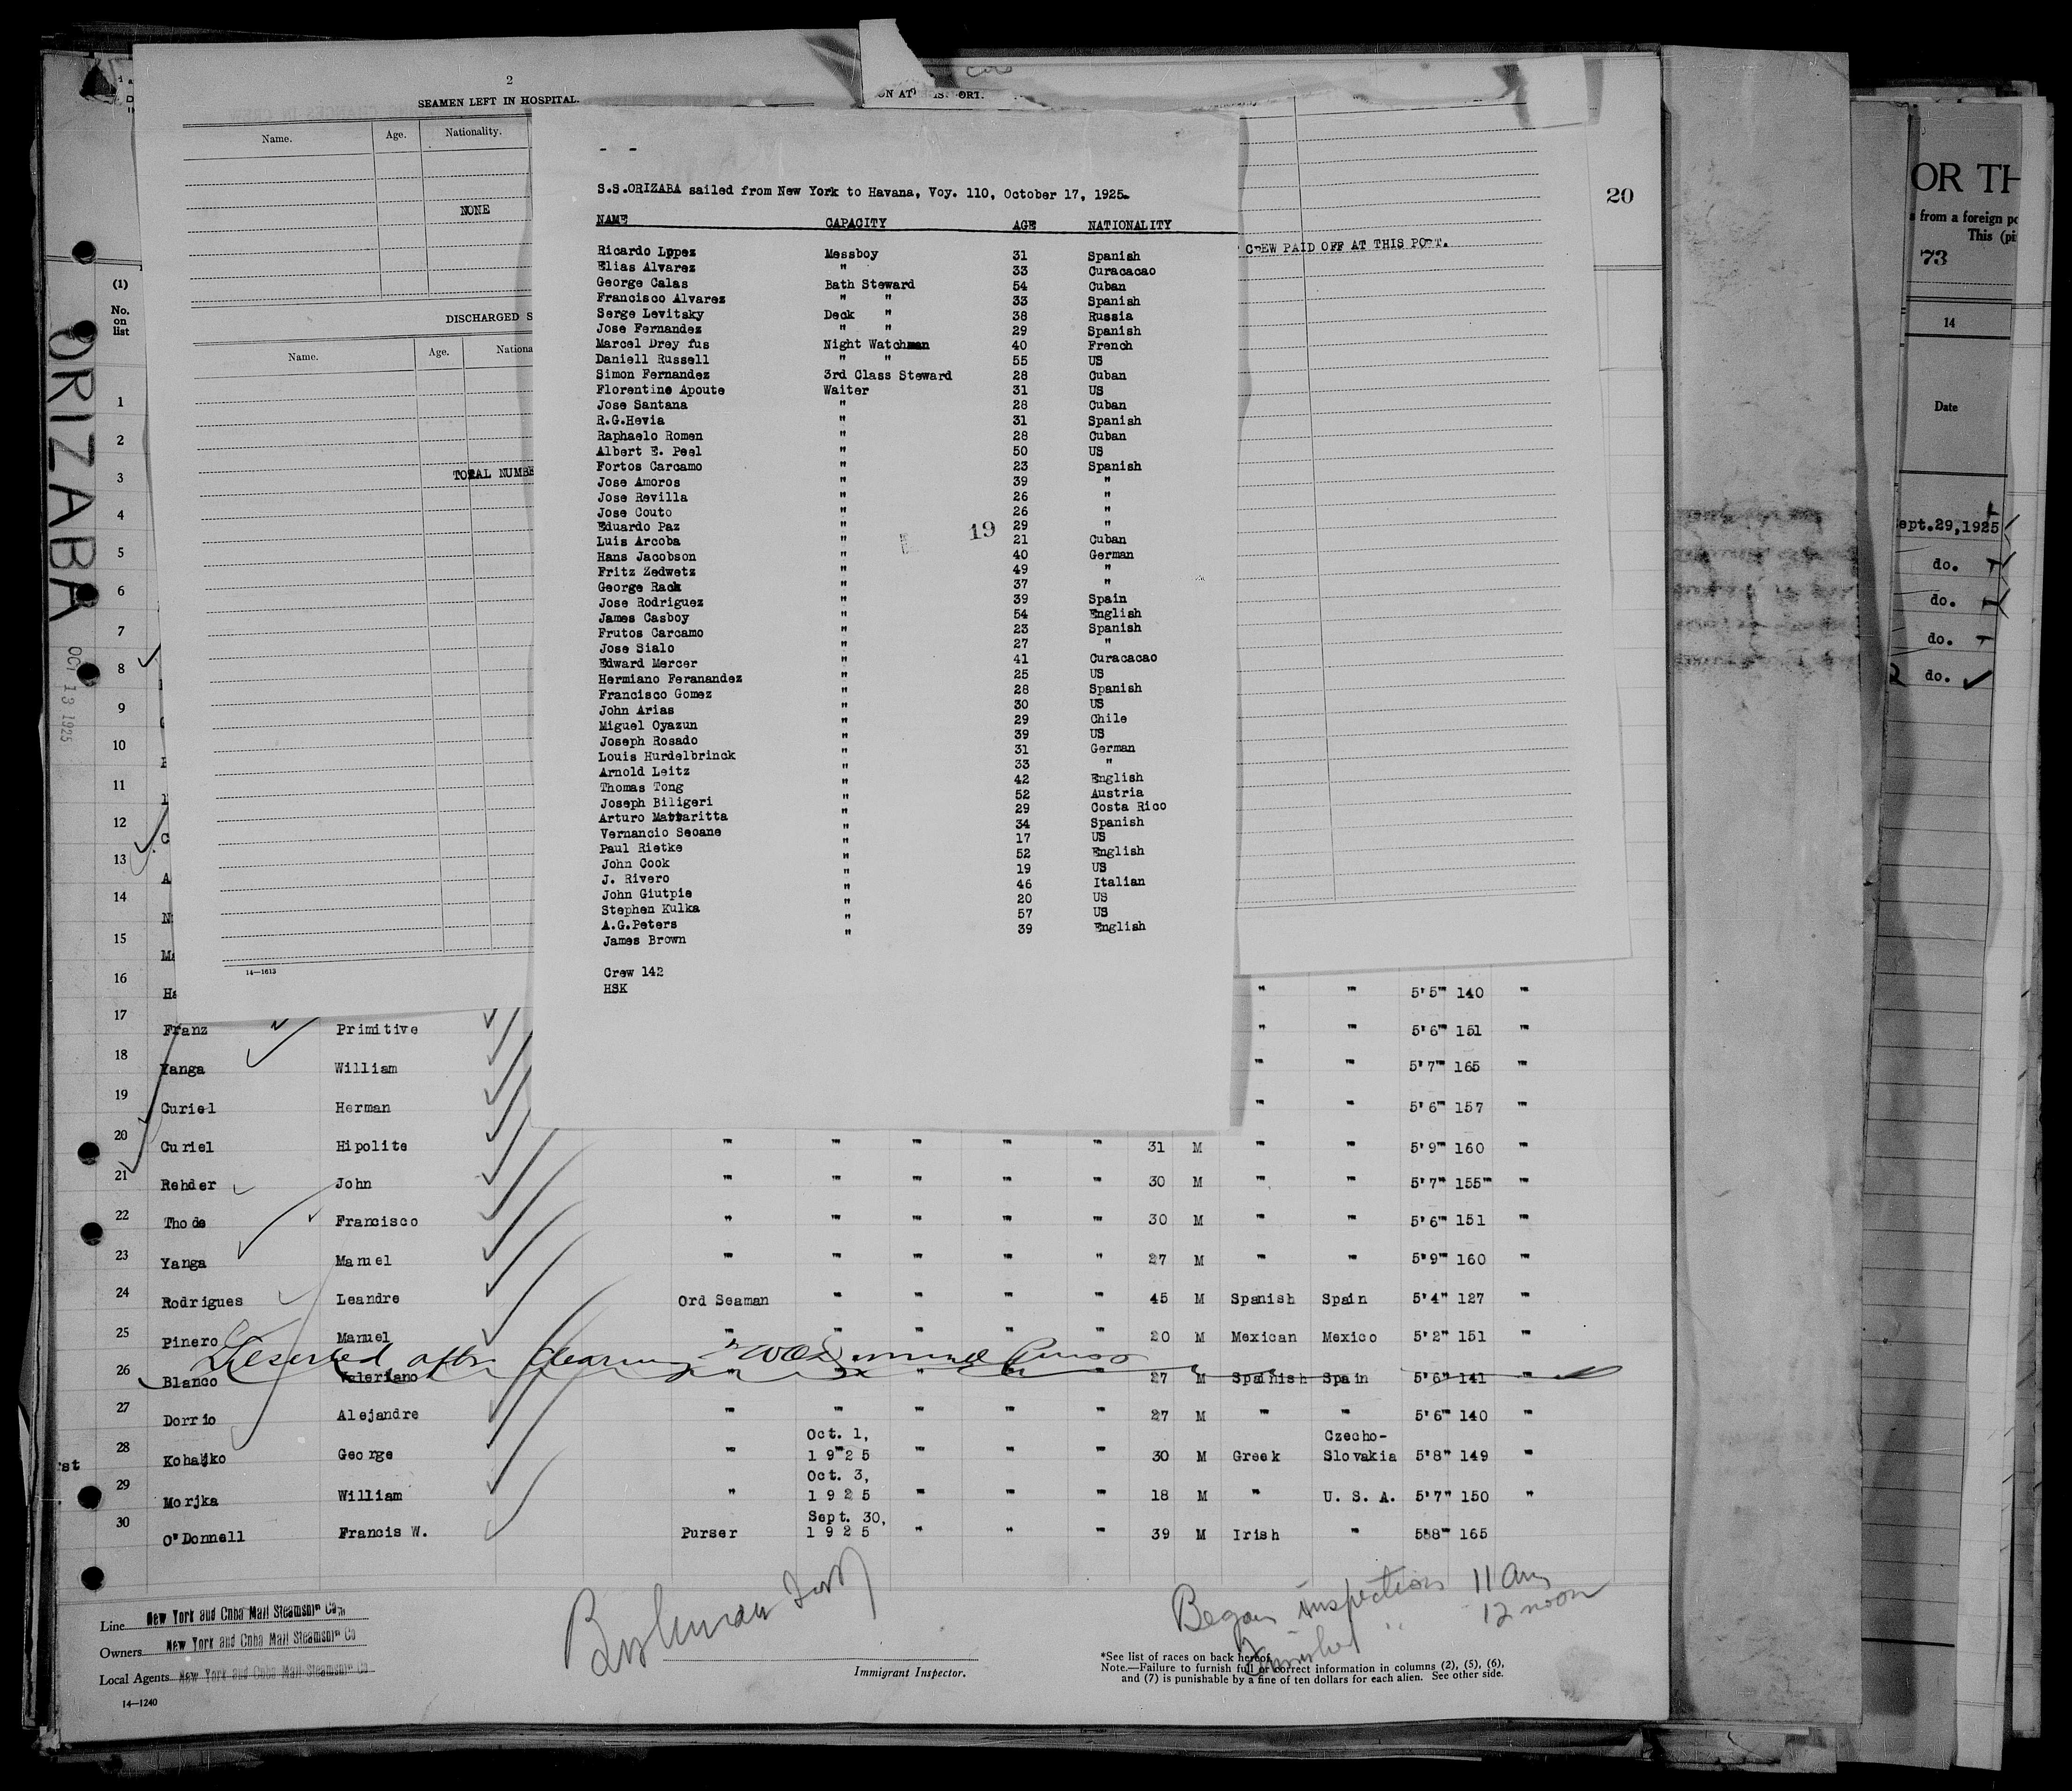 2
SEAMEN LEFT IN HOSPITAL.
Name. Age. Nationality.
NONE
DISCHARGED S
Name. Age. Nationa
TOTAL NUMBE
14—1613
CREW PAID OFF AT THIS PORT.
20
S.S.ORIZABA sailed from New York to Havana, Voy. 110, October 17, 1925.
NAME CAPACITY AGE NATIONALITY
Ricardo Lppez Messboy 31 Spanish
Elias Alvarez " 33 Curacacao
George Calas Bath Steward 54 Cuban
Francisco Alvarez " " 33 Spanish
Serge Levitsky Deck " 38 Russia
Jose Fernandez " " 29 Spanish
Marcel Drey fus Night Watchman 40 French
Daniell Russell " " 55 US
Simon Fernandez 3rd Class Steward 28 Cuban
Florentine Apoute Waiter 31 US
Jose Santana " 28 Cuban
R.G.Hevia " 31 Spanish
Raphaelo Romen " 28 Cuban
Albert E. Peel " 50 US
Fortos Carcamo " 23 Spanish
Jose Amoros " 39 "
Jose Revilla " 26 "
Jose Couto " 26 "
Eduardo Paz " 29 "
19
Luis Arcoba " 21 Cuban
Hans Jacobson " 40 German
Fritz Zedwetz " 49 "
George Rack " 37 "
Jose Rodriguez " 39 Spain
James Casboy " 54 English
Frutos Carcamo " 23 Spanish
Jose Sialo " 27 "
Edward Mercer " 41 Curacacao
Hermiano Feranandez " 25 US
Francisco Gomez " 28 Spanish
John Arias " 30 US
Miguel Oyazun " 29 Chile
Joseph Rosado " 39 US
Louis Hurdelbrinck " 31 German
Arnold Leitz " 33 "
Thomas Tong " 42 English
Joseph Biligeri " 52 Austria
Arturo Mattaritta " 29 Costa Rico
Vernancio Seoane " 34 Spanish
Paul Rietke " 17 US
John Cook " 52 English
J. Rivero " 19 US
John Giutpie " 46 Italian
Stephen Kulka " 20 US
A.G.Peters " 57 US
James Brown " 39 English
Crew 142
HSK
ORIZABA
OCT 13 1925
(1)
No.
on
list
1
2
3
4
5
6
7
8
9
10
11
12
13
14
15
16 " " 5'5" 140 "
17 Franz Primitive " " 5'6" 151 "
18 Yanga William " " 5'7" 165 "
19 Curiel Herman " " 5'6" 157 "
20 Curiel Hipolite " " " " " 31 M " " 5'9" 160 "
21 Rehder John " " " " " 30 M " " 5'7" 155" "
22 Thode Francisco " " " " " 30 M " " 5'6" 151 "
23 Yanga Manuel " " " " " 27 M " " 5'9" 160 "
24 Rodrigues Leandre Ord Seaman " " " " 45 M Spanish Spain 5'4" 127 "
25 Pinero Manuel " " " " " 20 M Mexican Mexico 5'2" 151 "
Deserted after clearing
26 Blanco Valeriano " " " " " 27 M Spanish Spain 5'6" 141 "
27 Dorrio Alejandre " " " " " 27 M " " 5'6" 140 "
28 Kohaljko George " Oct. 1, 1925 " " " 30 M Greek Czecho-Slovakia 5'8" 149 "
29 Morjka William " Oct. 3, 1925 " " " 18 M " U. S. A. 5'7" 150 "
30 O'Donnell Francis W. Purser Sept. 30, 1925 " " " 39 M Irish " 5'8" 165
Line New York and Cuba Mail Steamship Co.
Owners New York and Cuba Mail Steamship Co
Local Agents New York and Cuba Mail Steamship Co
14—1240
Immigrant Inspector.
Began inspection 11 am
Finished " 12 noon
*See list of races on back hereof.
Note.—Failure to furnish full or correct information in columns (2), (5), (6),
and (7) is punishable by a fine of ten dollars for each alien. See other side.
OR TH
s from a foreign po
This (pi
73
14
Date
ept.29,1925
do.
do.
do.
do.